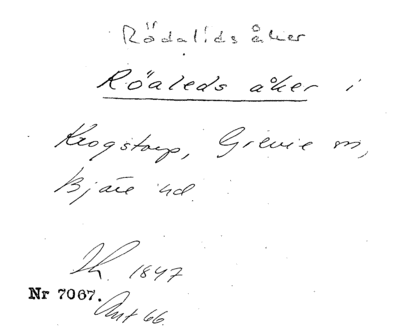 Rödalids åker
Röaleds åker i
Krogstorp, Grevie sn,
Bjäre hd.
Th. 1847
Nr 7067.
Ant 66